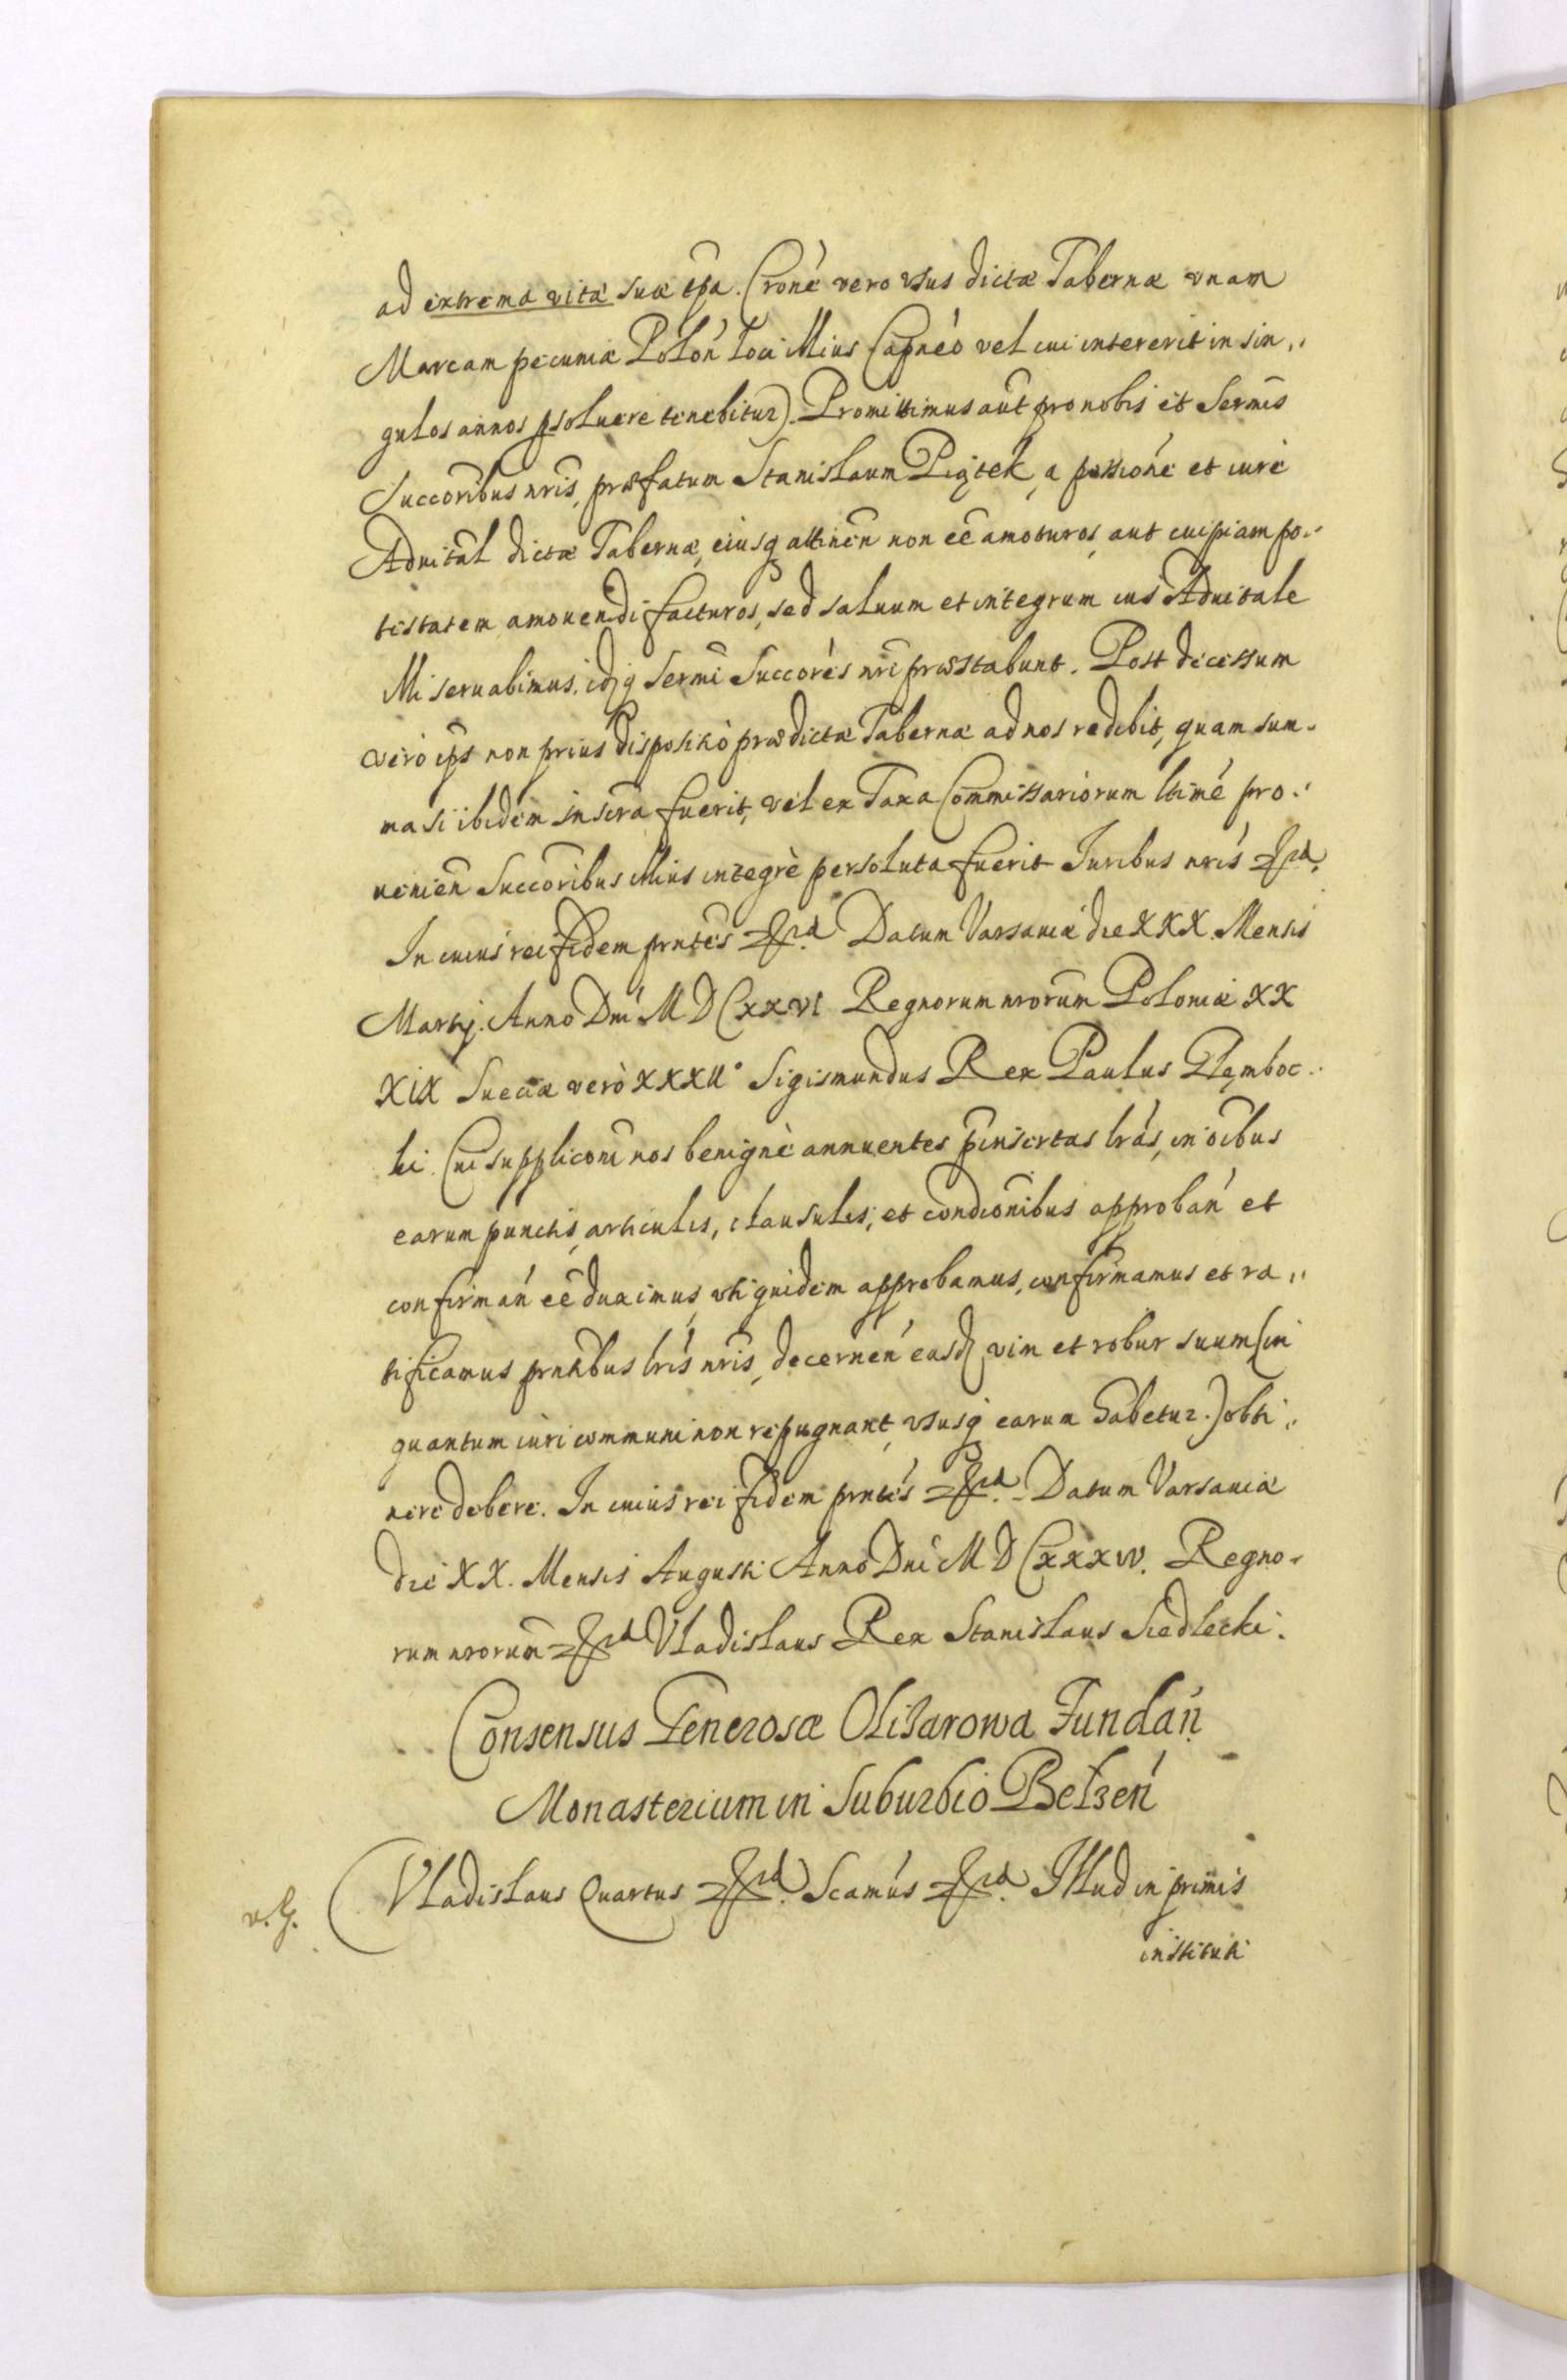 ad extrema vitæ suæ tpa. (rone vero vsus dictæ Tabernæ vnam
Marcam pecuniæ Polon̄ loci illius Capneo vel cui intererit in sin„
gulos annos psoluere tenebitur). Promittimus aut̄ pro nobis et Serm̄is
Succoribus nr̄is, præfatum Stanislaum Piątek, a possione et iure
Aduital dictæ Tabernæ, eiusq attinen̄ non eē amoturos, aut cuipiam po„
testatem amouendi facturos, sed saluum et integrum ius Aduitale
illi seruabimus, idq Sermi Succores nri præstabunt. Post decessum
verò ips̄ non prius dispositio prædictæ Tabernæ ad nos redibit, quam sum„
ma si ibidem inscra fuerit, vel ex Taxa Commissariorum ltimé pro„
uenien̄ Succoribus illius integrè persoluta fuerit Iuribus nris &rd.
In cuius rei fidem prntes &rd. Datum Varsauiæ die XXX. Mensis
Martij. Anno Dni M D C xxvi Regnorum nrorum Poloniæ XX
XIX Sueciæ verò XXXII° Sigismundus Rex Paulus Plęmboc„
ki. Cui suppliconi nos benignè annuentes pinsertas lras, in oibus
earum punctis, articulis, clausulis, et condionibus approban̄ et
confirman̄ eē duximus, vti quidem approbamus, confirmamus et ra„
tificamus prntibus lris nris, decernen̄ easd vim et robur suum (in
quantum iuri communi non repugnant, vsusq earum habetur.) obti„
nere debere. In cuius rei fidem prntes &rd. Datum Varsauiæ
die XX. Mensis Augusti Anno Dni M D C xxxiv. Regno„
rum nrorum &rd Vladislaus Rex Stanislaus Siedlecki.
Consensus Generosæ Olizarowa Fundan̄
Monasterium in Suburbio Belzen̄
v. G. Vladislaus Quartus &rd. Scamus &rd. Illud in primis
instituti